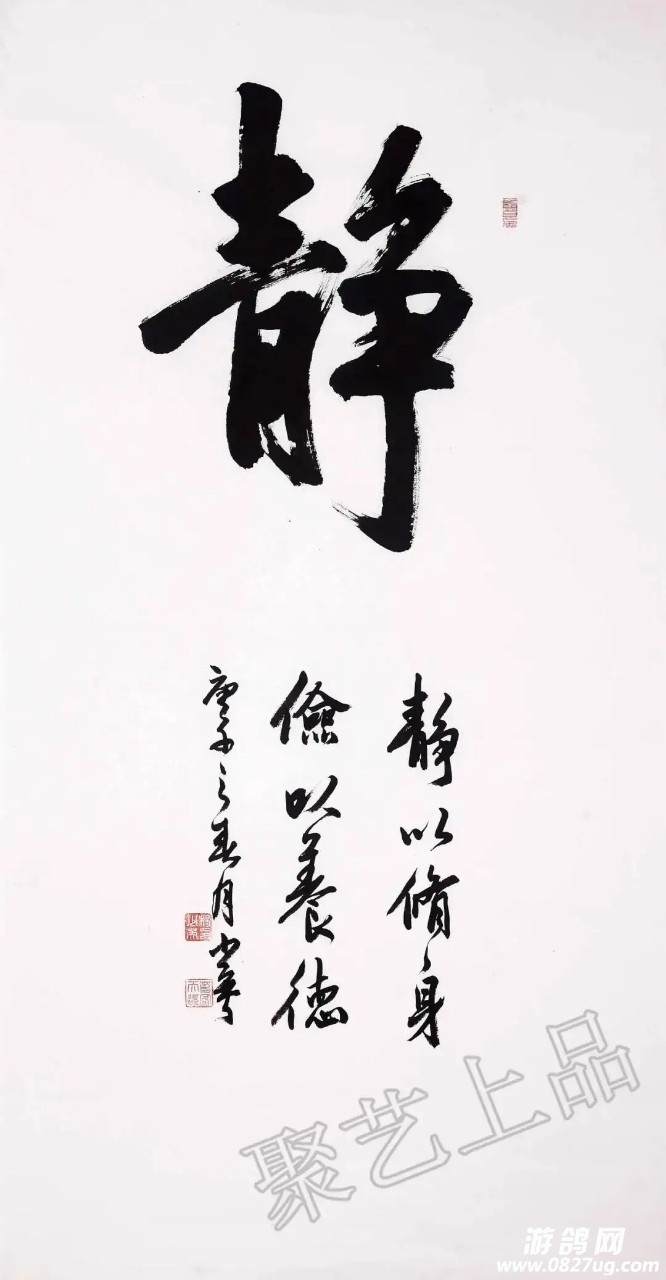 静
静以脩身
俭以養德
庚子之春月 少华
聚艺上品
游鸽网
www.0827ug.com